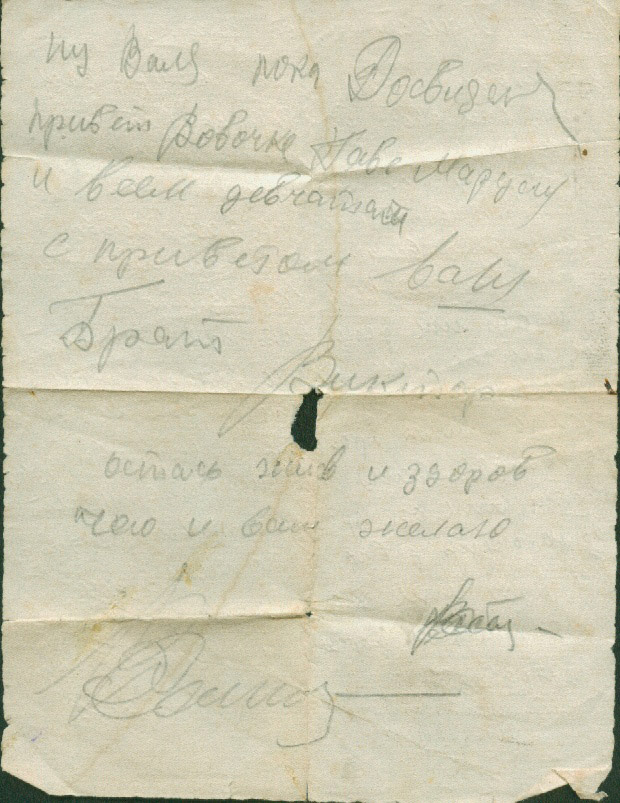 ну Валя пока Досвидан
привет Вовочке Паве Марусу
и всем девчатам
с приветом ваш
Брат
Виктор
остаюсь жив и здоров
чаю и вам желаю